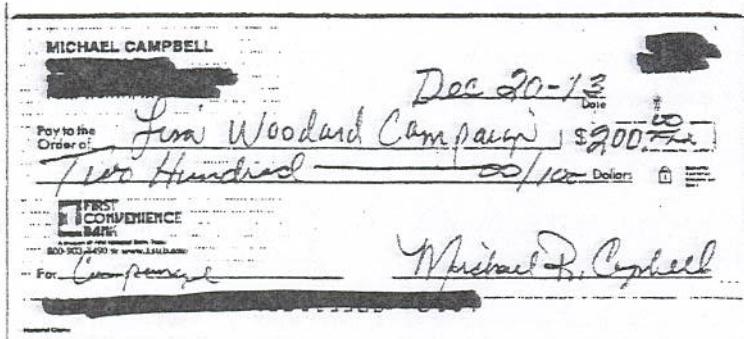 MICHAEL CAMPBELL
Dec 20-13
Date
Pay to the
Order of Lisa Woodard Campaign $200.00
Two Hundred 00/100 Dollars
FIRST
CONVENIENCE
BANK
For
Michael R. Campbell